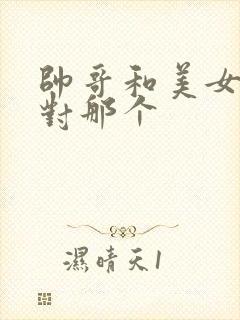 帥哥和美女
對那个
濕晴天1